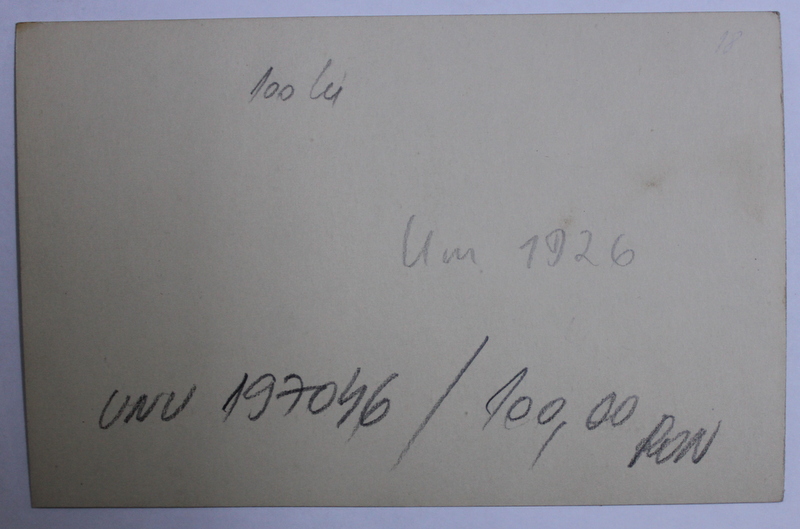 18
100 lei
Um 1926
UNU 197046 / 100,00 RON